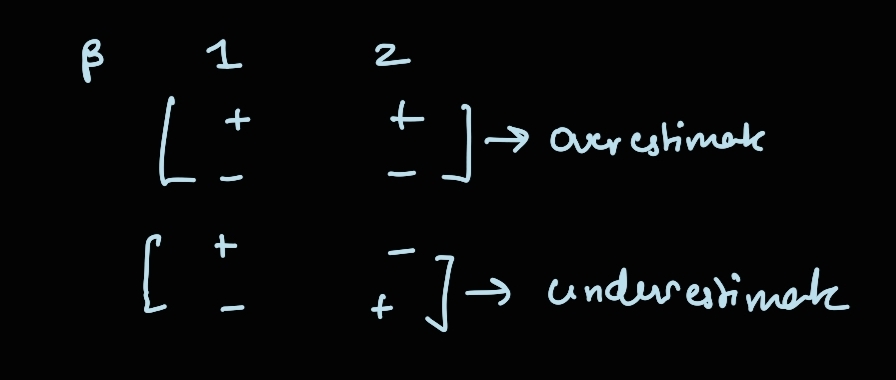 β 1 2
[ + + ] → overestimate
- -
[ + - ] → underestimate
- +